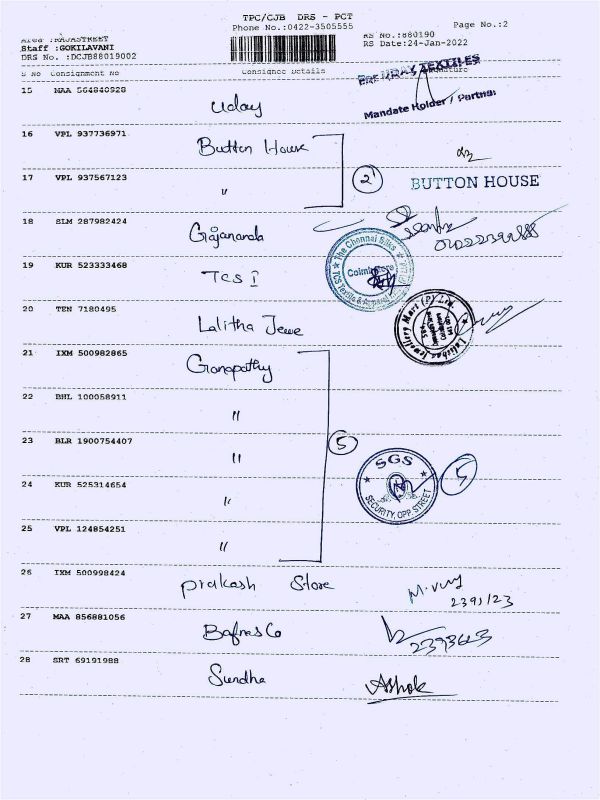 TPC/CJB DRS - PCT
Phone No.:0422-3505555 Page No.:2
Area :RAJASTREET RS No.:880190
Staff :GOKILAVANI RS Date:24-Jan-2022
DRS No. :DCJB88019002
S No Consignment No Consignee Details Signature
TEXTILES
Mandate Holder / Partner
15 MAA 564840928 Uday
16 VPL 937736971 Button House
17 VPL 937567123 " 2 BUTTON HOUSE
18 SLM 287982424 Gajananda
19 KUR 523333468 TCS I
The Chennai Silks
Coimbatore
20 TEN 7180495 Lalitha Jewe
Lalithaa Jewellery Mart (P) Ltd.
21 IXM 500982865 Ganapathy
22 BHL 100058911 "
23 BLR 1900754407 " 5
24 KUR 525314654 " SGS 5
SECURITY, OPP. STREET
25 VPL 124854251 "
26 IXM 500998424 Prakash Store
2391123
27 MAA 856881056 Bafnas Co
28 SRT 69191988 Sundha Ashok